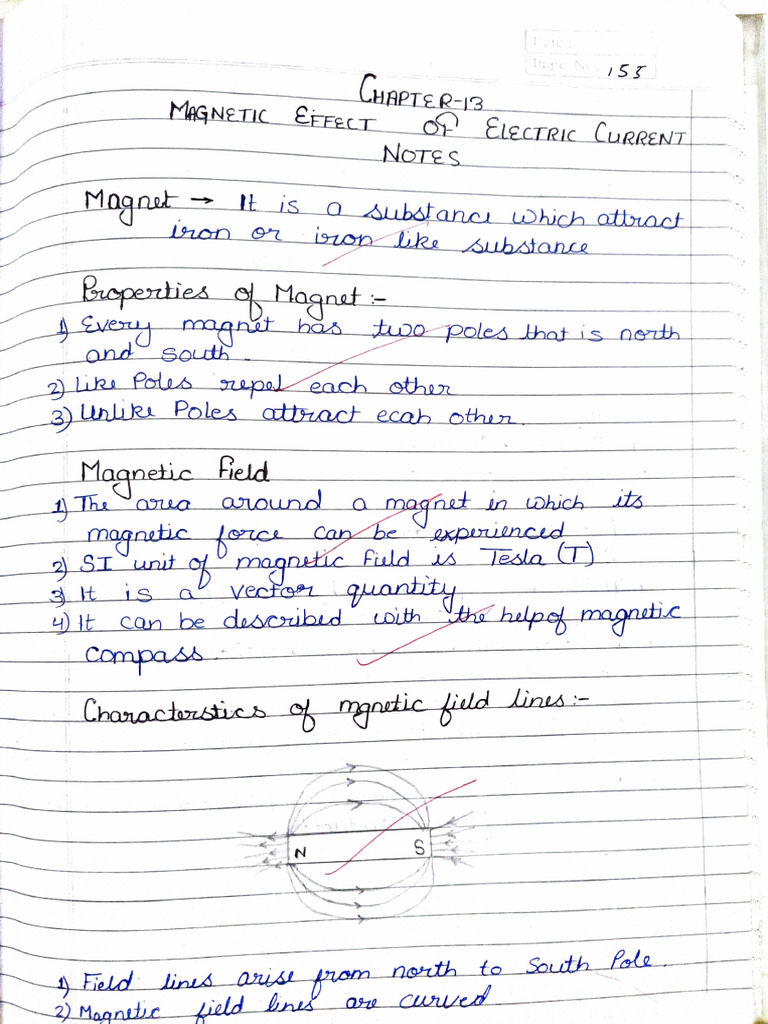 Date:
Page No. 155
CHAPTER-13
MAGNETIC EFFECT OF ELECTRIC CURRENT
NOTES
Magnet → It is a substance which attract
iron or iron like substance
Properties of Magnet :-
1) Every magnet has two poles that is north
and south.
2) Like Poles repel each other
3) Unlike Poles attract ecah other.
Magnetic field
1) The area around a magnet in which its
magnetic force can be experienced
2) SI unit of magnetic field is Tesla (T)
3) It is a vector quantity
4) It can be described with the help of magnetic
compass.
Characterstics of mgnetic field lines :-
N S
1) Field lines arise from north to South Pole.
2) Magnetic field lines are curved